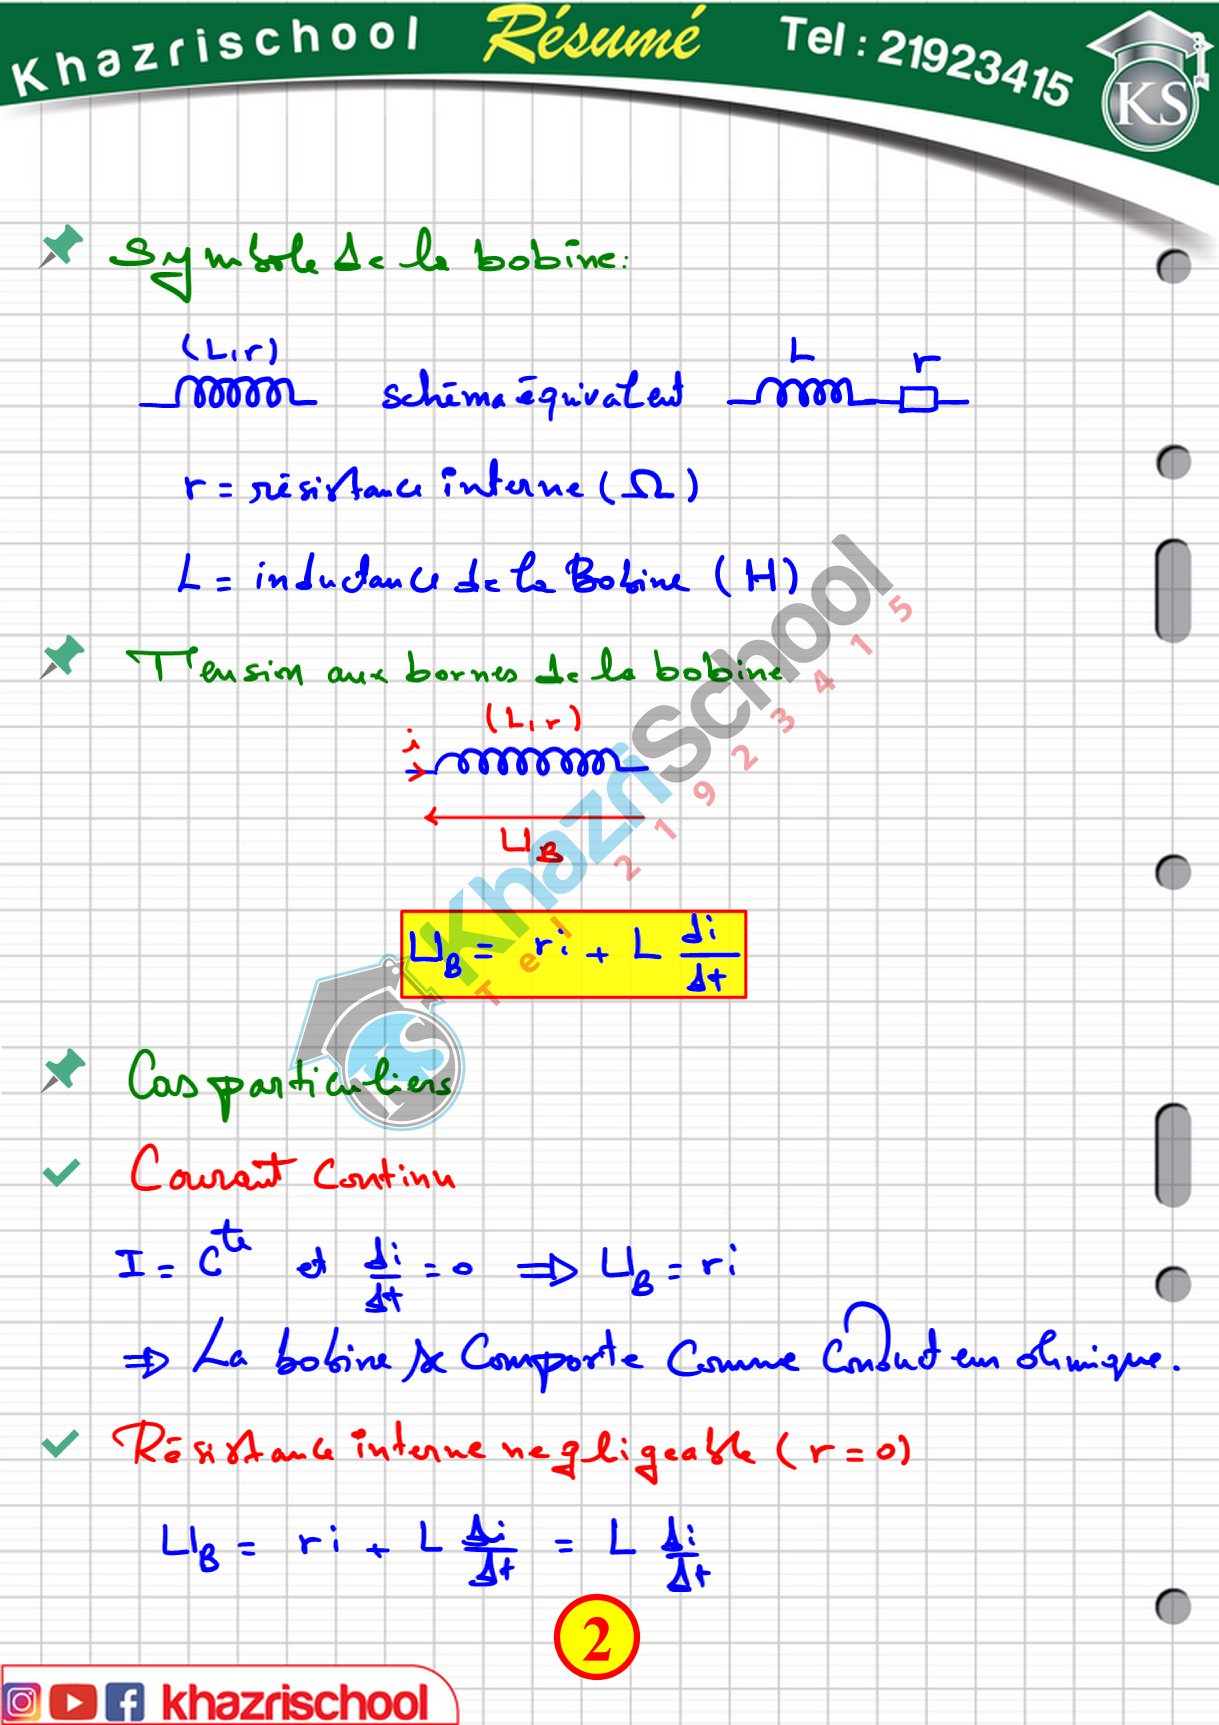 Khazrischool Résumé Tel : 21923415
KS
Symbole de la bobine:
(L,r) schéma équivalent L r
r = résistance interne (Ω)
L = inductance de la Bobine (H)
Tension aux bornes de la bobine
(L,r)
i
U_B
U_B = ri + L di/dt
Cas particuliers
Courant Continu
I = C^te et di/dt = 0 ⇒ U_B = ri
⇒ La bobine se Comporte Comme Conducteur ohmique.
Résistance interne negligeable (r = 0)
U_B = ri + L di/dt = L di/dt
2
khazrischool
KhazriSchool
Tel 21923415
KS